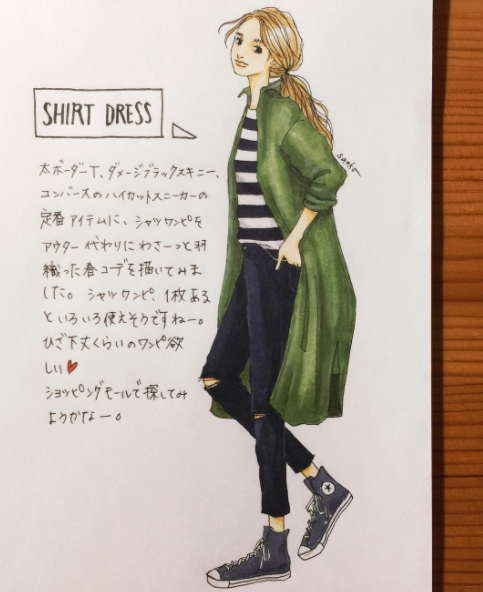 SHIRT DRESS
太ボーダーT、ダメージブラックスキニー、
コンバースのハイカットスニーカーの
定番アイテムに、シャツワンピを
アウター代わりにわさーっと羽
織った春コーデを描いてみま
した。シャツワンピ、1枚ある
といろいろ使えそうですねー。
ひざ下丈くらいのワンピ欲
しい♥
ショッピングモールで探してみ
ようかなー。
sanko